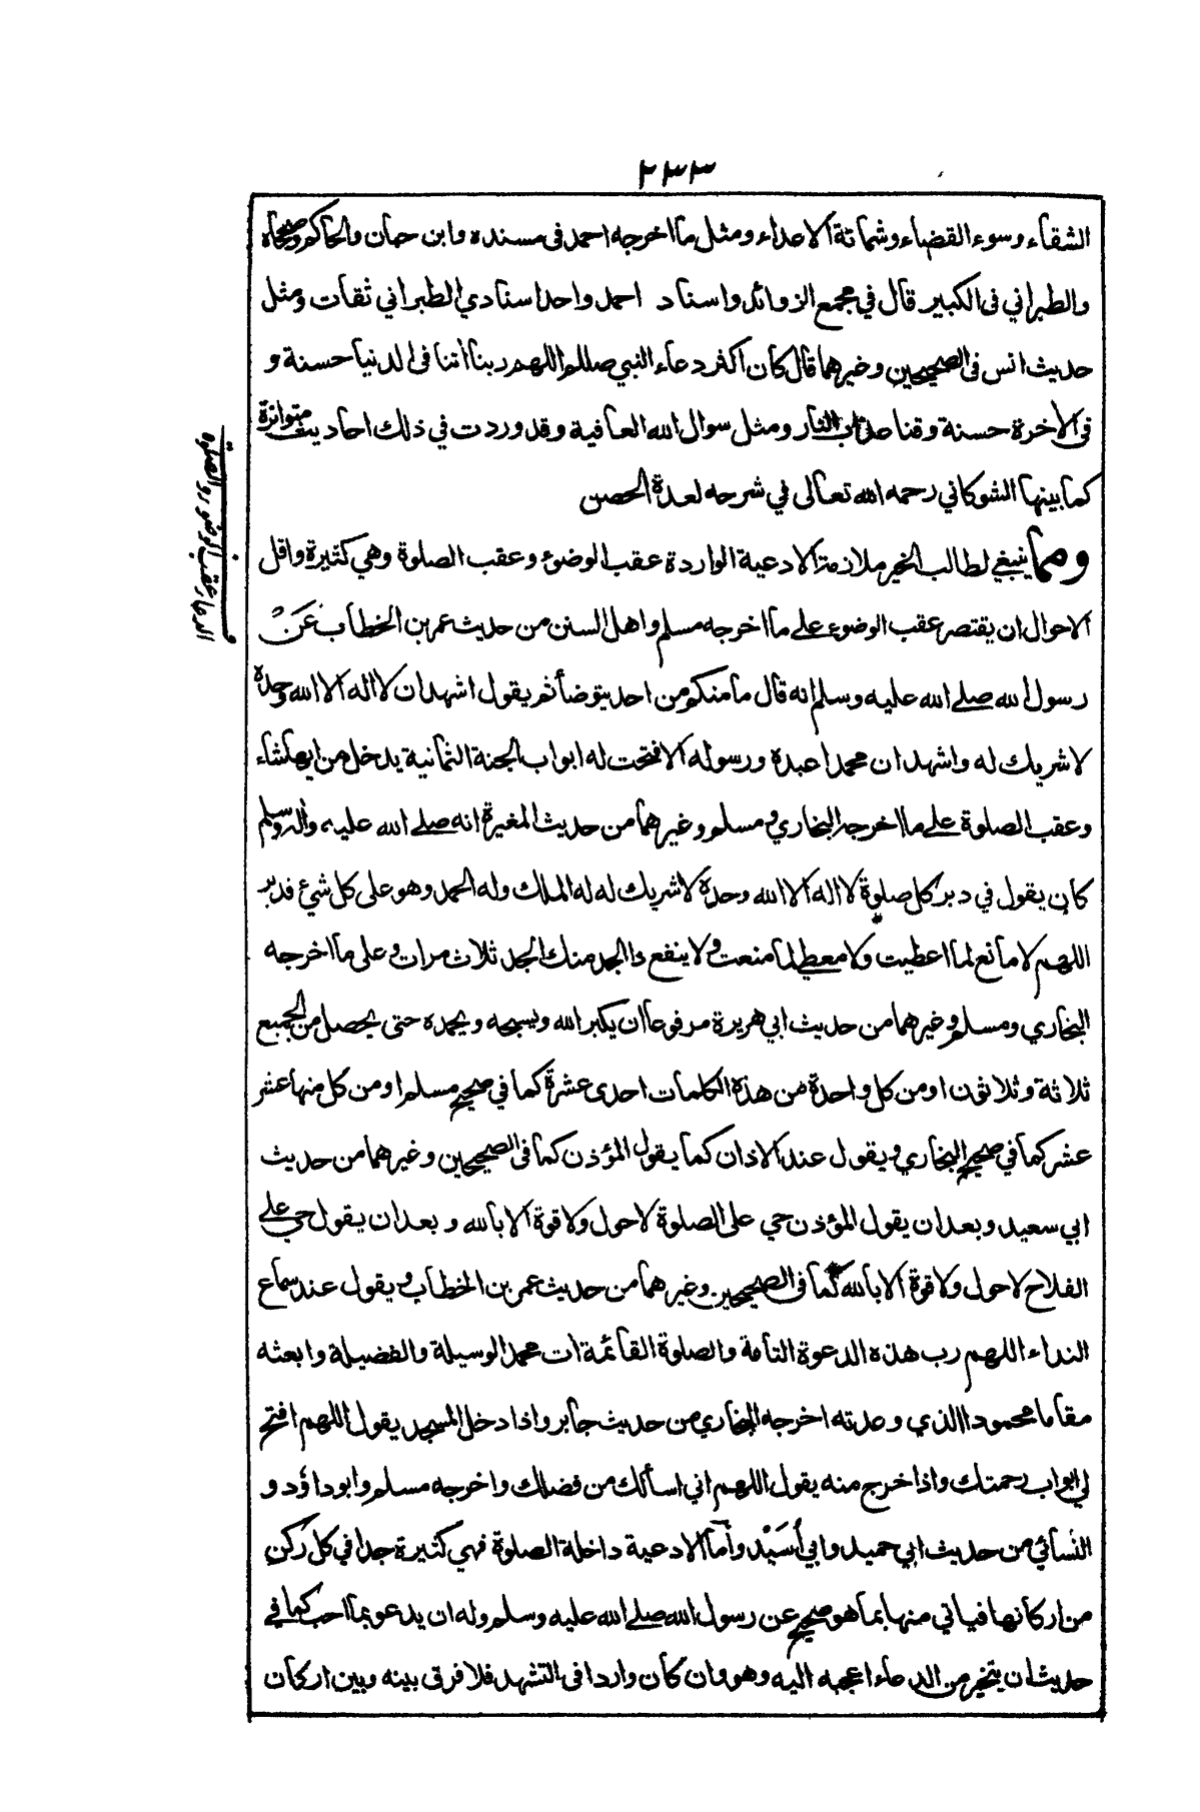 ٢٣٣
الشقاء وسوء القضاء وشماتة الاعداء ومثل ما اخرجه احمد فى مسنده وابن حبان والحاكم وصححاه
والطبراني فى الكبير قال في مجمع الزوائد واسناد احمد واحد اسنادي الطبراني ثقات ومثل
حديث انس فى الصحيحين وغيرهما قال كان اكثر دعاء النبي صللم اللهم ربنا اتنا فى الدنيا حسنة و
فى الاخرة حسنة وقنا عذاب النار ومثل سوال الله العافية وقد وردت في ذلك احاديث متواترة
كما بينها الشوكاني رحمه الله تعالى في شرحه لعدة الحصن
ومما ينبغي لطالب الخير ملازمة الادعية الواردة عقب الوضوء وعقب الصلوة وهي كثيرة واقل
الاحوال ان يقتصر عقب الوضوء على ما اخرجه مسلم واهل السنن من حديث عمر بن الخطاب عَنْ
رسول الله صلے الله عليه وسلم انه قال ما منكم من احد يتوضأ ثم يقول اشهد ان لا اله الا الله وحده
لا شريك له واشهد ان محمدا عبده ورسوله الا فتحت له ابواب الجنة الثمانية يدخل من ايها شاء
وعقب الصلوة علے ما اخرجه البخاري ومسلم وغيرهما من حديث المغيرة انه صلے الله عليه واله وسلم
كان يقول في دبر كل صلوة لا اله الا الله وحده لا شريك له له الملك وله الحمد وهو على كل شيء قدير
اللهم لا مانع لما اعطيت ولا معطي لما منعت ولا ينفع ذا الجد منك الجد ثلاث مرات وعلى ما اخرجه
البخاري ومسلم وغيرهما من حديث ابي هريرة مرفوعا ان يكبر الله ويسبحه ويحمده حتى يحصل من الجميع
ثلاثة وثلاثون او من كل واحدة من هذه الكلمات احدى عشرة كما في صحيح مسلم او من كل منها عشر
عشر كما في صحيح البخاري ويقول عند الاذان كما يقول المؤذن كما فى الصحيحين وغيرهما من حديث
ابي سعيد وبعد ان يقول المؤذن حي على الصلوة لا حول ولا قوة الا بالله وبعد ان يقول حي علے
الفلاح لا حول ولا قوة الا بالله كما فى الصحيحين وغيرهما من حديث عمر بن الخطاب ويقول عند سماع
النداء اللهم رب هذه الدعوة التامة والصلوة القائمة ات محمد الوسيلة والفضيلة وابعثه
مقاما محمودا الذي وعدته اخرجه البخاري من حديث جابر واذا دخل المسجد يقول اللهم افتح
لي ابواب رحمتك واذا خرج منه يقول اللهم اني اسألك من فضلك واخرجه مسلم وابو داؤد و
النسائي من حديث ابي حميد وابي أُسَيْد وأما الادعية داخلة الصلوة فهي كثيرة جدا في كل ركن
من اركانها فياتي منها بما هو صحيح عن رسول الله صلے الله عليه وسلم وله ان يدعو بما احب كما في
حديث ان يتخير من الدعاء اعجبه اليه وهو وان كان واردا فى التشهد فلا فرق بينه وبين اركان
الدعاء عقب الوضوء والصلوة